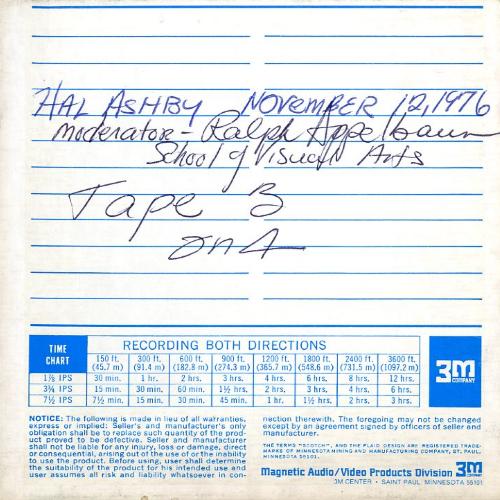 HAL ASHBY NOVEMBER 12, 1976
Moderator - Ralph Appelbaum
School of Visual Arts
Tape B
on A
TIME CHART RECORDING BOTH DIRECTIONS
150 ft. (45.7 m) 300 ft. (91.4 m) 600 ft. (182.8 m) 900 ft. (274.3 m) 1200 ft. (365.7 m) 1800 ft. (548.6 m) 2400 ft. (731.5 m) 3600 ft. (1097.2 m)
1⅞ IPS 30 min. 1 hr. 2 hrs. 3 hrs. 4 hrs. 6 hrs. 8 hrs. 12 hrs.
3¾ IPS 15 min. 30 min. 60 min. 1½ hrs. 2 hrs. 3 hrs. 4 hrs. 6 hrs.
7½ IPS 7½ min. 15 min. 30 min. 45 min. 1 hr. 1½ hrs. 2 hrs. 3 hrs.
3M COMPANY
NOTICE: The following is made in lieu of all warranties,
express or implied: Seller's and manufacturer's only
obligation shall be to replace such quantity of the prod-
uct proved to be defective. Seller and manufacturer
shall not be liable for any injury, loss or damage, direct
or consequential, arising out of the use of or the inability
to use the product. Before using, user shall determine
the suitability of the product for his intended use and
user assumes all risk and liability whatsoever in con-
nection therewith. The foregoing may not be changed
except by an agreement signed by officers of seller and
manufacturer.
THE TERMS "SCOTCH", AND THE PLAID DESIGN ARE REGISTERED TRADE-
MARKS OF MINNESOTA MINING AND MANUFACTURING COMPANY, ST. PAUL,
MINNESOTA 55101.
Magnetic Audio/Video Products Division 3M
3M CENTER • SAINT PAUL, MINNESOTA 55101